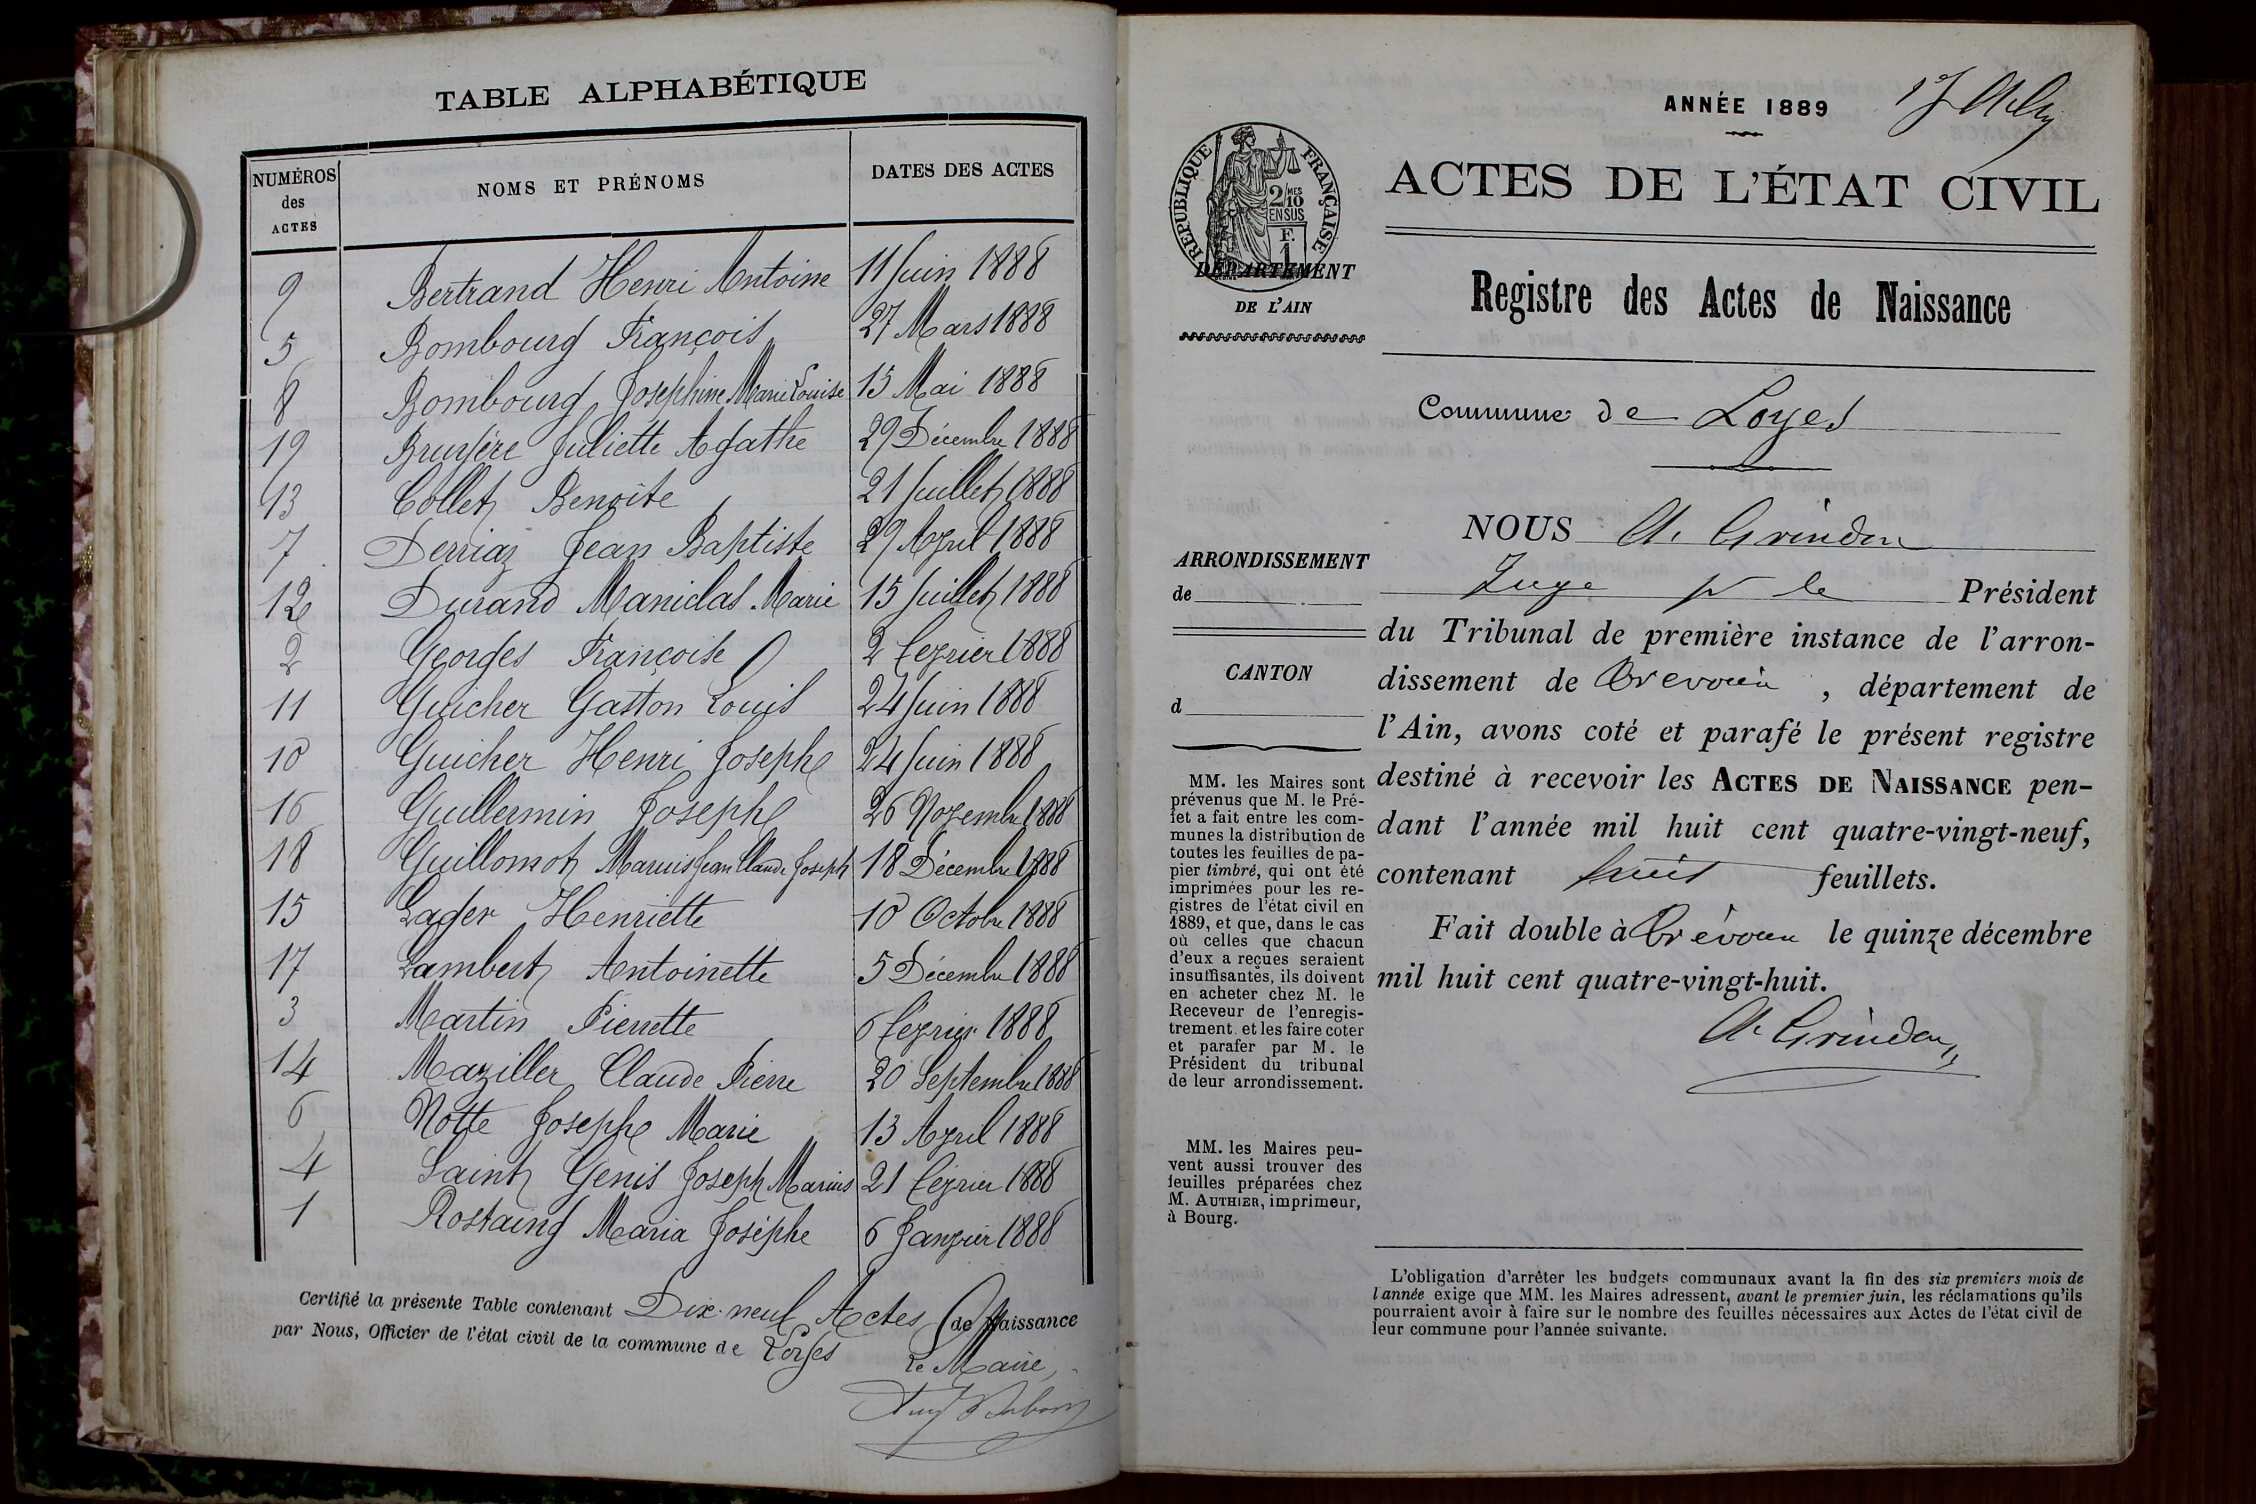 TABLE ALPHABÉTIQUE
NUMÉROS des ACTES NOMS ET PRÉNOMS DATES DES ACTES
9 Bertrand Henri Antoine 11 Juin 1888
5 Bombourg François 27 Mars 1888
8 Bombourg Josephine Marie Louise 15 Mai 1888
19 Bruyère Juliette Agathe 29 Décembre 1888
13 Collet Benoite 21 Juillet 1888
7 Derriaz Jean Baptiste 29 Avril 1888
12 Durand Maniclas Marie 15 Juillet 1888
2 Georges Françoise 2 Fevrier 1888
11 Guicher Gaston Louis 24 Juin 1888
10 Guicher Henri Josephe 24 Juin 1888
16 Guillermin Josephe 26 Novembre 1888
18 Guillomot Marius Jean Claude Joseph 18 Décembre 1888
15 Lager Henriette 10 Octobre 1888
17 Lambert Antoinette 5 Décembre 1888
3 Martin Pierrette 6 Fevrier 1888
14 Maziller Claude Pierre 20 Septembre 1888
6 Notte Josephe Marie 13 Avril 1888
4 Saint Genis Joseph Marius 21 Février 1888
1 Rostaing Maria Joséphe 6 Janvier 1888
Certifié la présente Table contenant Dix-neuf Actes de Naissance
par Nous, Officier de l'état civil de la commune de Loyes
Le Maire,
ANNÉE 1889
RÉPUBLIQUE FRANÇAISE
2/10 MES
EN SUS
F.
1
ACTES DE L'ÉTAT CIVIL
DÉPARTEMENT
DE L'AIN
Registre des Actes de Naissance
Commune de Loyes
ARRONDISSEMENT
de
CANTON
d
MM. les Maires sont
prévenus que M. le Pré-
fet a fait entre les com-
munes la distribution de
toutes les feuilles de pa-
pier timbré, qui ont été
imprimées pour les re-
gistres de l'état civil en
1889, et que, dans le cas
où celles que chacun
d'eux a reçues seraient
insuffisantes, ils doivent
en acheter chez M. le
Receveur de l'enregis-
trement et les faire coter
et parafer par M. le
Président du tribunal
de leur arrondissement.
MM. les Maires peu-
vent aussi trouver des
feuilles préparées chez
M. AUTHIER, imprimeur,
à Bourg.
NOUS A. Grindon
Juge pr le Président
du Tribunal de première instance de l'arron-
dissement de Trevoux, département de
l'Ain, avons coté et parafé le présent registre
destiné à recevoir les ACTES DE NAISSANCE pen-
dant l'année mil huit cent quatre-vingt-neuf,
contenant huit feuillets.
Fait double à Trévoux le quinze décembre
mil huit cent quatre-vingt-huit.
A. Grindon
L'obligation d'arrêter les budgets communaux avant la fin des six premiers mois de
l'année exige que MM. les Maires adressent, avant le premier juin, les réclamations qu'ils
pourraient avoir à faire sur le nombre des feuilles nécessaires aux Actes de l'état civil de
leur commune pour l'année suivante.